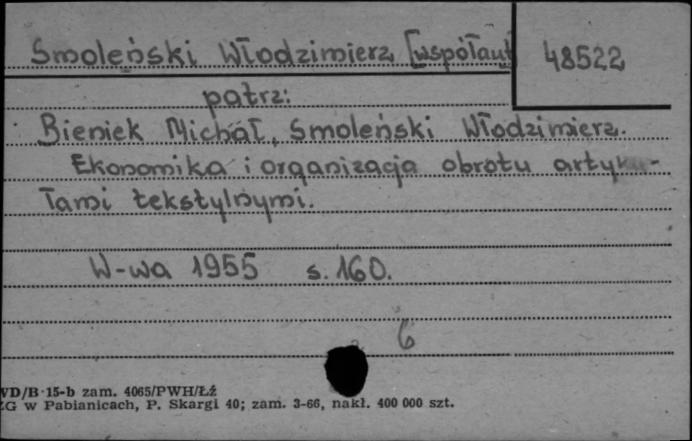 Smoleński Włodzimierz [współaut 48522
patrz:
Bieniek Michał, Smoleński Włodzimierz.
Ekonomika i organizacja obrotu artyku-
łami tekstylnymi.
W-wa 1955 s. 160.
6
VD/B 15-b zam. 4065/PWH/Łź
ZG w Pabianicach, P. Skargi 40; zam. 3-66, nakł. 400 000 szt.